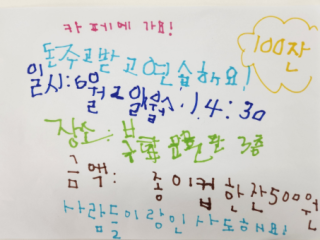 카페에 가요!
100잔
돈주고받고연습해요!
일시:6월2일 1 4:30
장소: 3층
금액: 종이컵한잔500원
사람들이랑인사도해요!